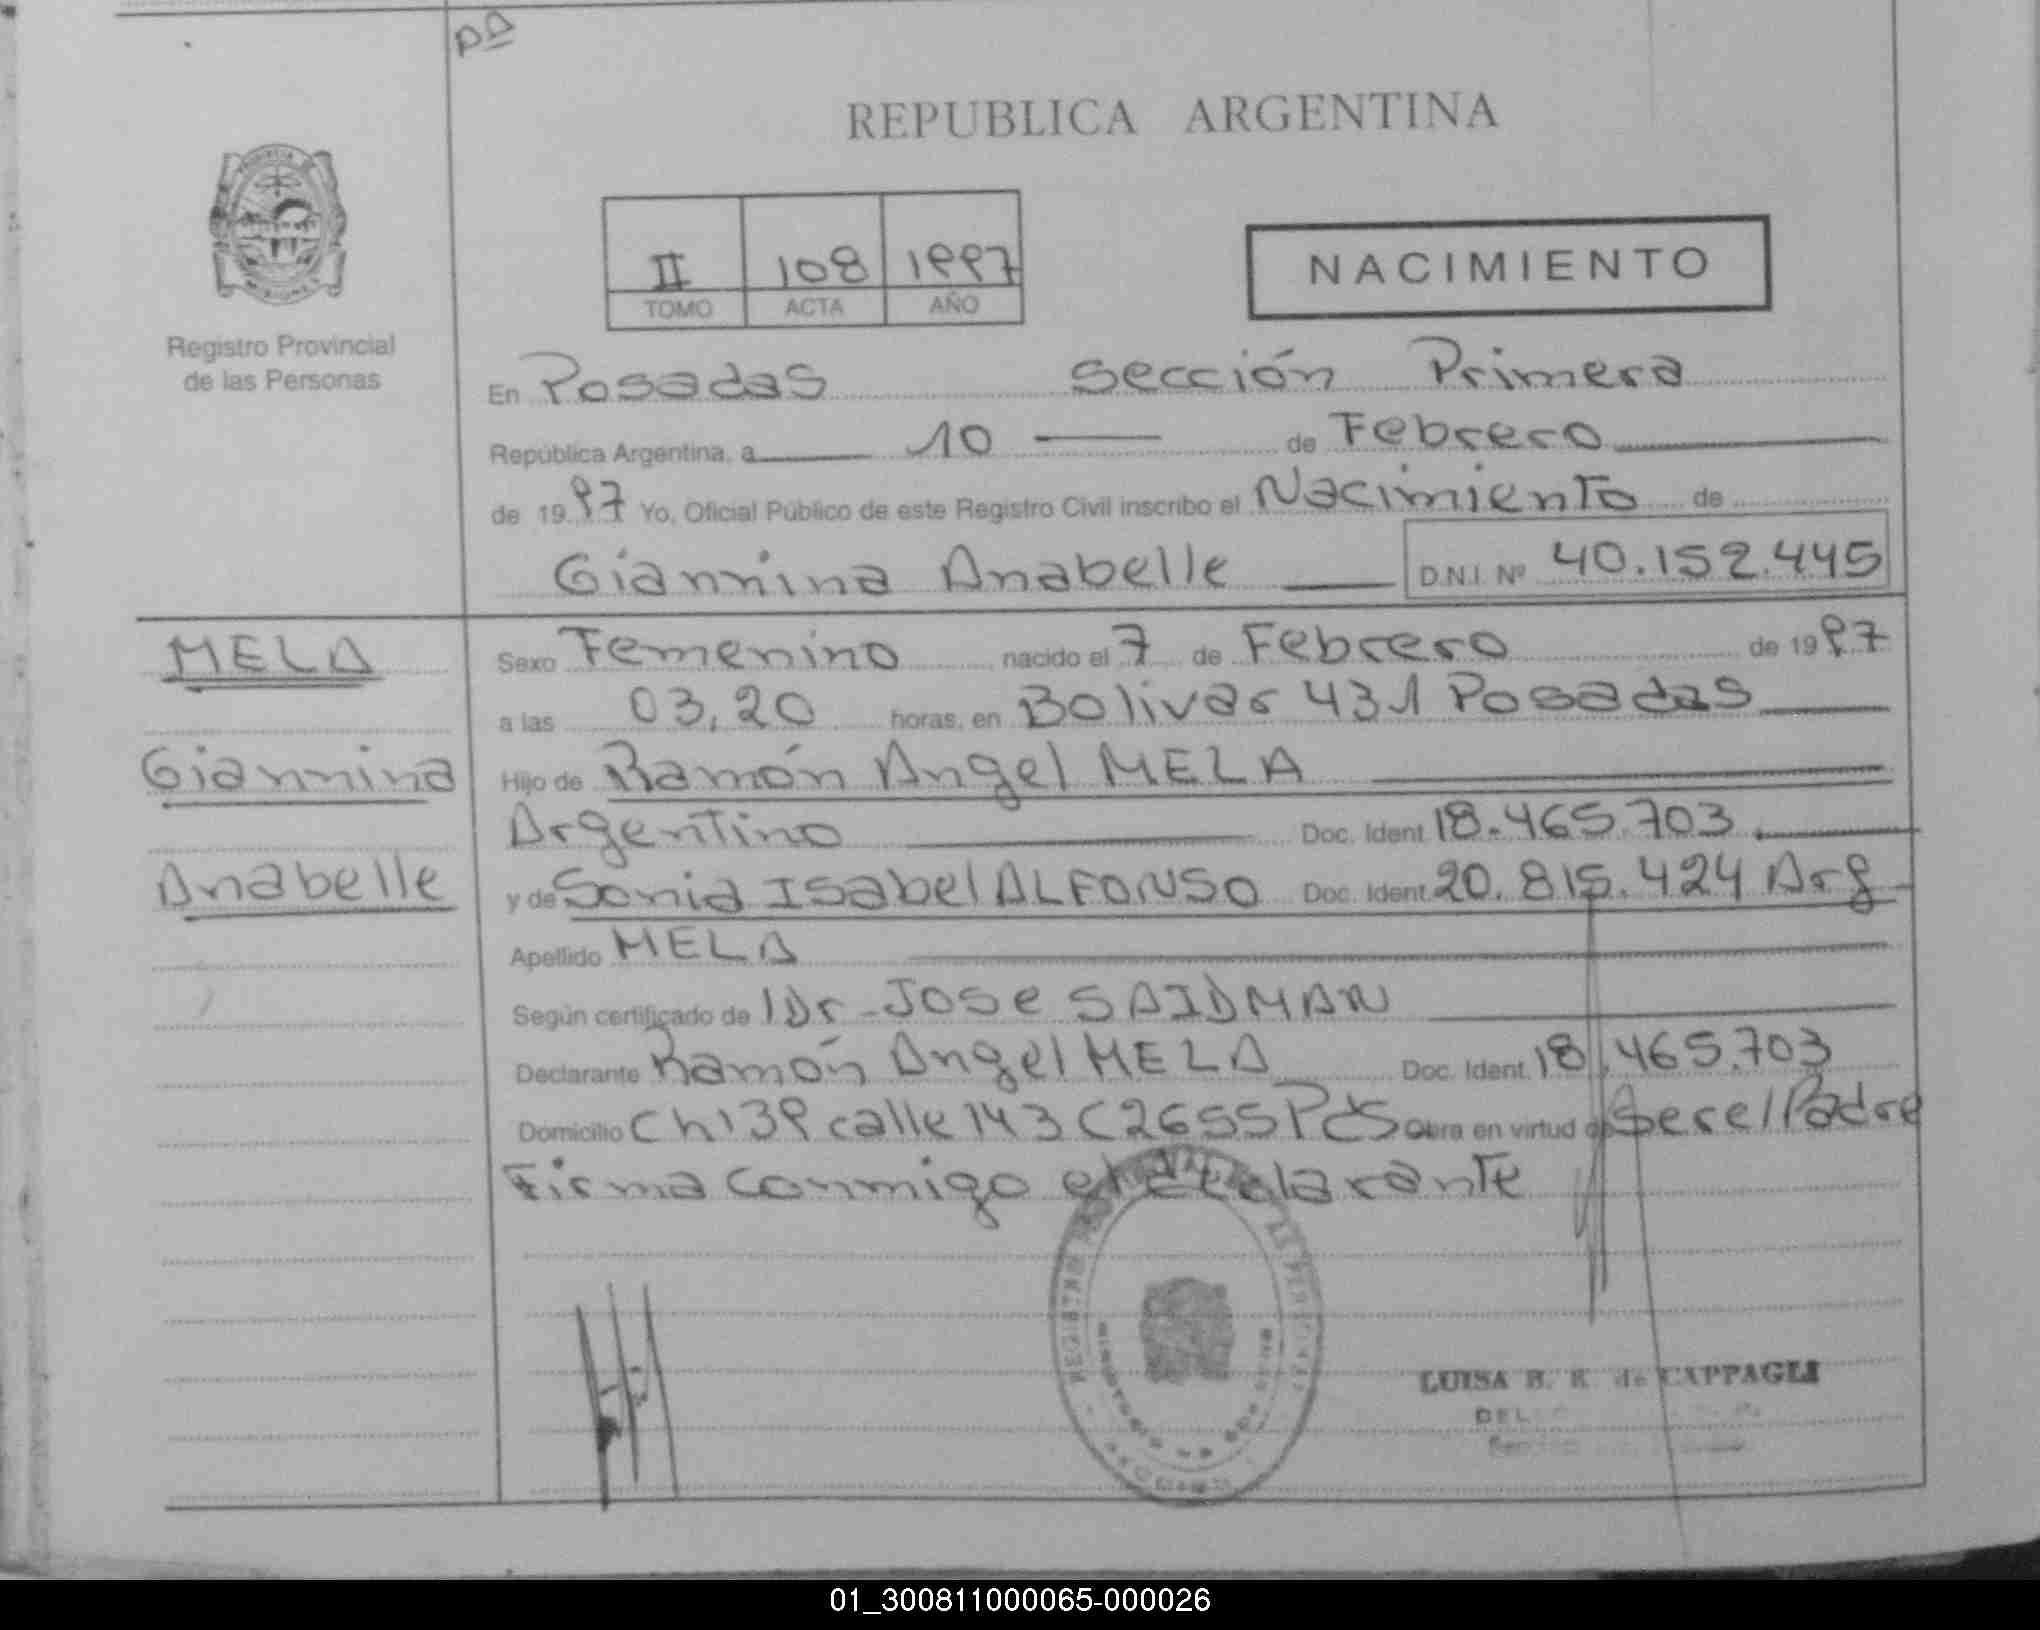 REPUBLICA ARGENTINA
II 108 1997
TOMO ACTA AÑO
NACIMIENTO
Registro Provincial
de las Personas
En Posadas sección Primera
República Argentina, a 10 de Febrero
de 1997 Yo, Oficial Público de este Registro Civil inscribo el Nacimiento de
Giannina Anabelle D.N.I. Nº 40.152.445
MELA
Giannina
Anabelle
Sexo Femenino nacido el 7 de Febrero de 1997
a las 03,20 horas, en Bolivar 431 Posadas
Hijo de Ramón Angel MELA
Argentino Doc. Ident. 18.465.703
y de Sonia Isabel ALFONSO Doc. Ident. 20.815.424 Arg
Apellido MELA
Según certificado de Dr. JOSe SAIDMAN
Declarante Ramón Angel MELA Doc. Ident. 18.465.703
Domicilio Ch 139 calle 143 C2655 Pds Obra en virtud de Ser el Padre
Firma conmigo el declarante
LUISA R. de CAPPAGLI
01_300811000065-000026